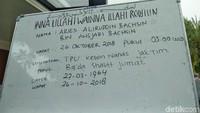 INNA LILLAHI WAINNA ILLAHI ROJIUN
NAMA : ARIES ALIRUDDIN BACHSIN
BIN ANSJARI BACHSIN
WAFAT : 26 OKTOBER 2018 PUKUL 03.00 WIB
TPU KEBON NANAS JAKTIM
Ba'da Shalat Jumat
LAHIR : 27-03-1964
WAFAT : 26-10-2018
detikcom